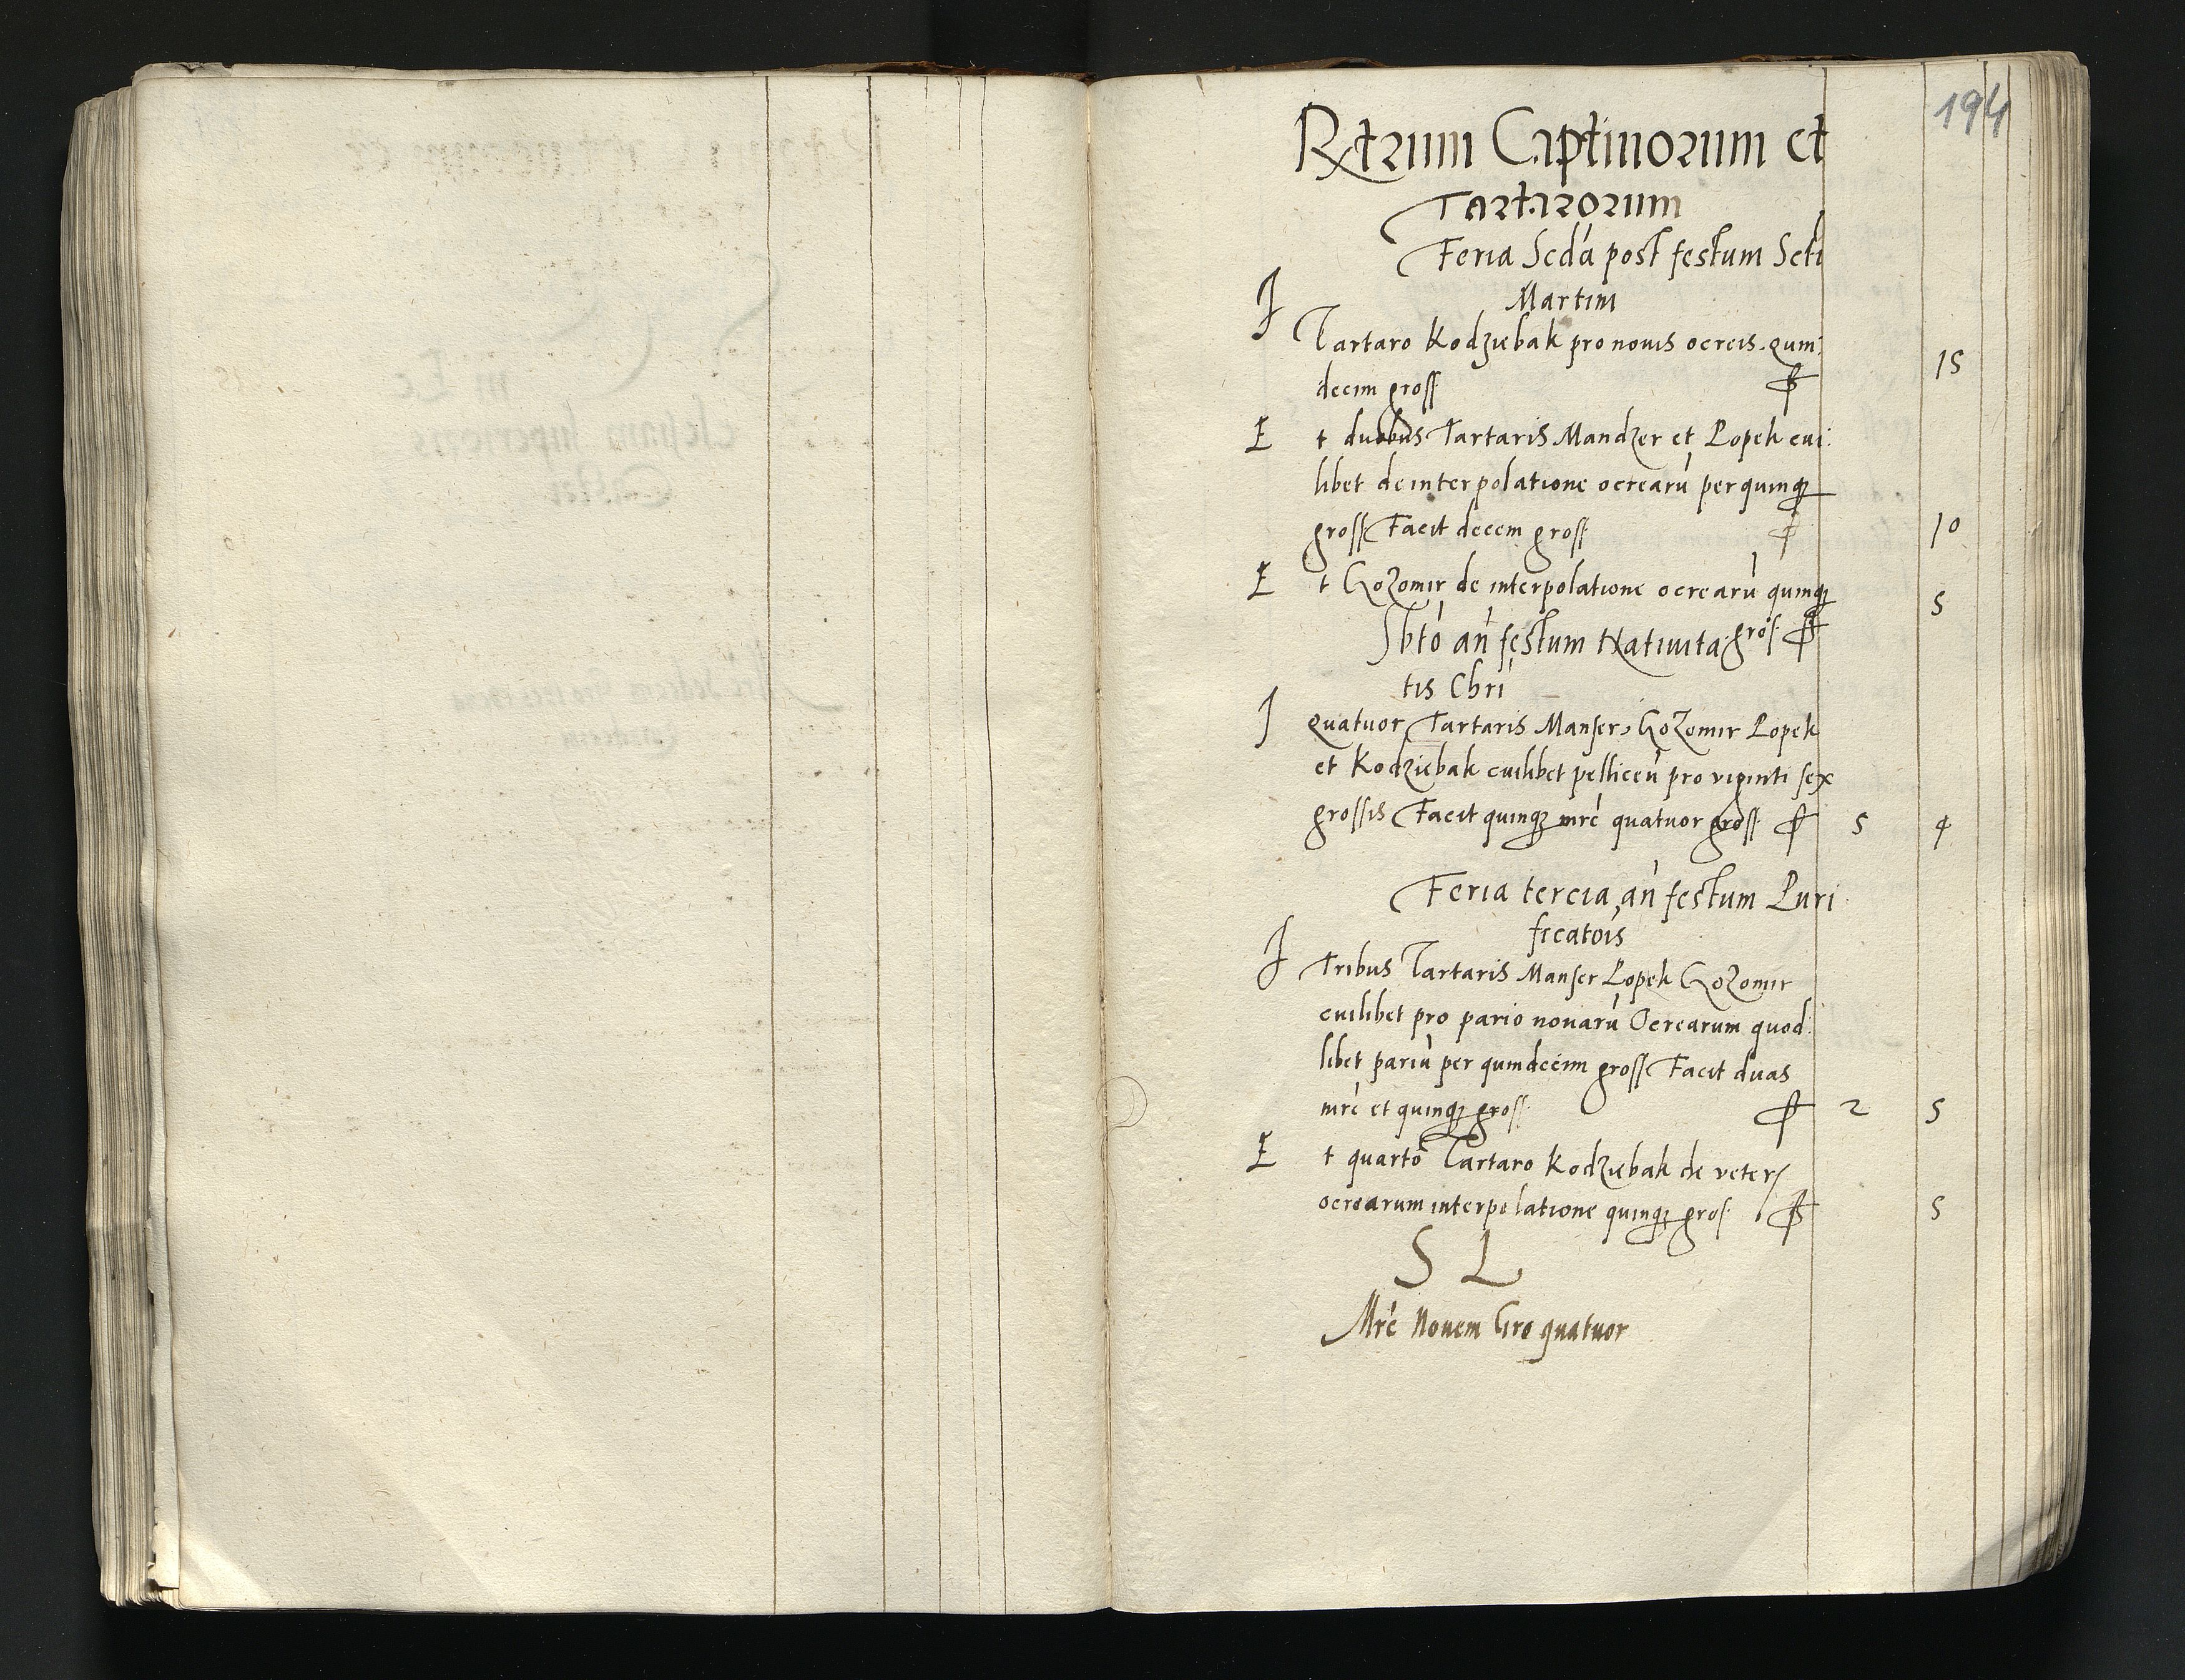 194
Rxtrum Captiuorum et
Tartarorum
Feria Scda post festum Scti
Martini
Tartaro Kodziebak pro nouis ocreis quin:
decim gross 15
Et duobus Tartaris Mandzer et Lopek cui:
libet de interpolatione ocrearu per quinq3
gross Facit decem gross 10
Et Gozomir de interpolatione ocrearu quinq3 5
gros
Sbto an festum Natiuita
tis Chri
quatuor Tartaris Manser, Gozomir Lopek
et Kodziebak cuilibet pelliceu pro viginti sex
grossis Facit quinq3 mrc quatuor gross 5 4
Feria tercia an festum Puri
ficatois
Tribus Tartaris Manser Lopek Gozomir
cuilibet pro pario nouaru Ocrearum quod:
libet pariu per quindecim gross Facit duas
mrc et quinq3 gross 2 5
Et quarto Tartaro Kodziebak de veter
ocrearum interpolatione quinq3 gros 5
S L
Mrc Nouem Gro quatuor